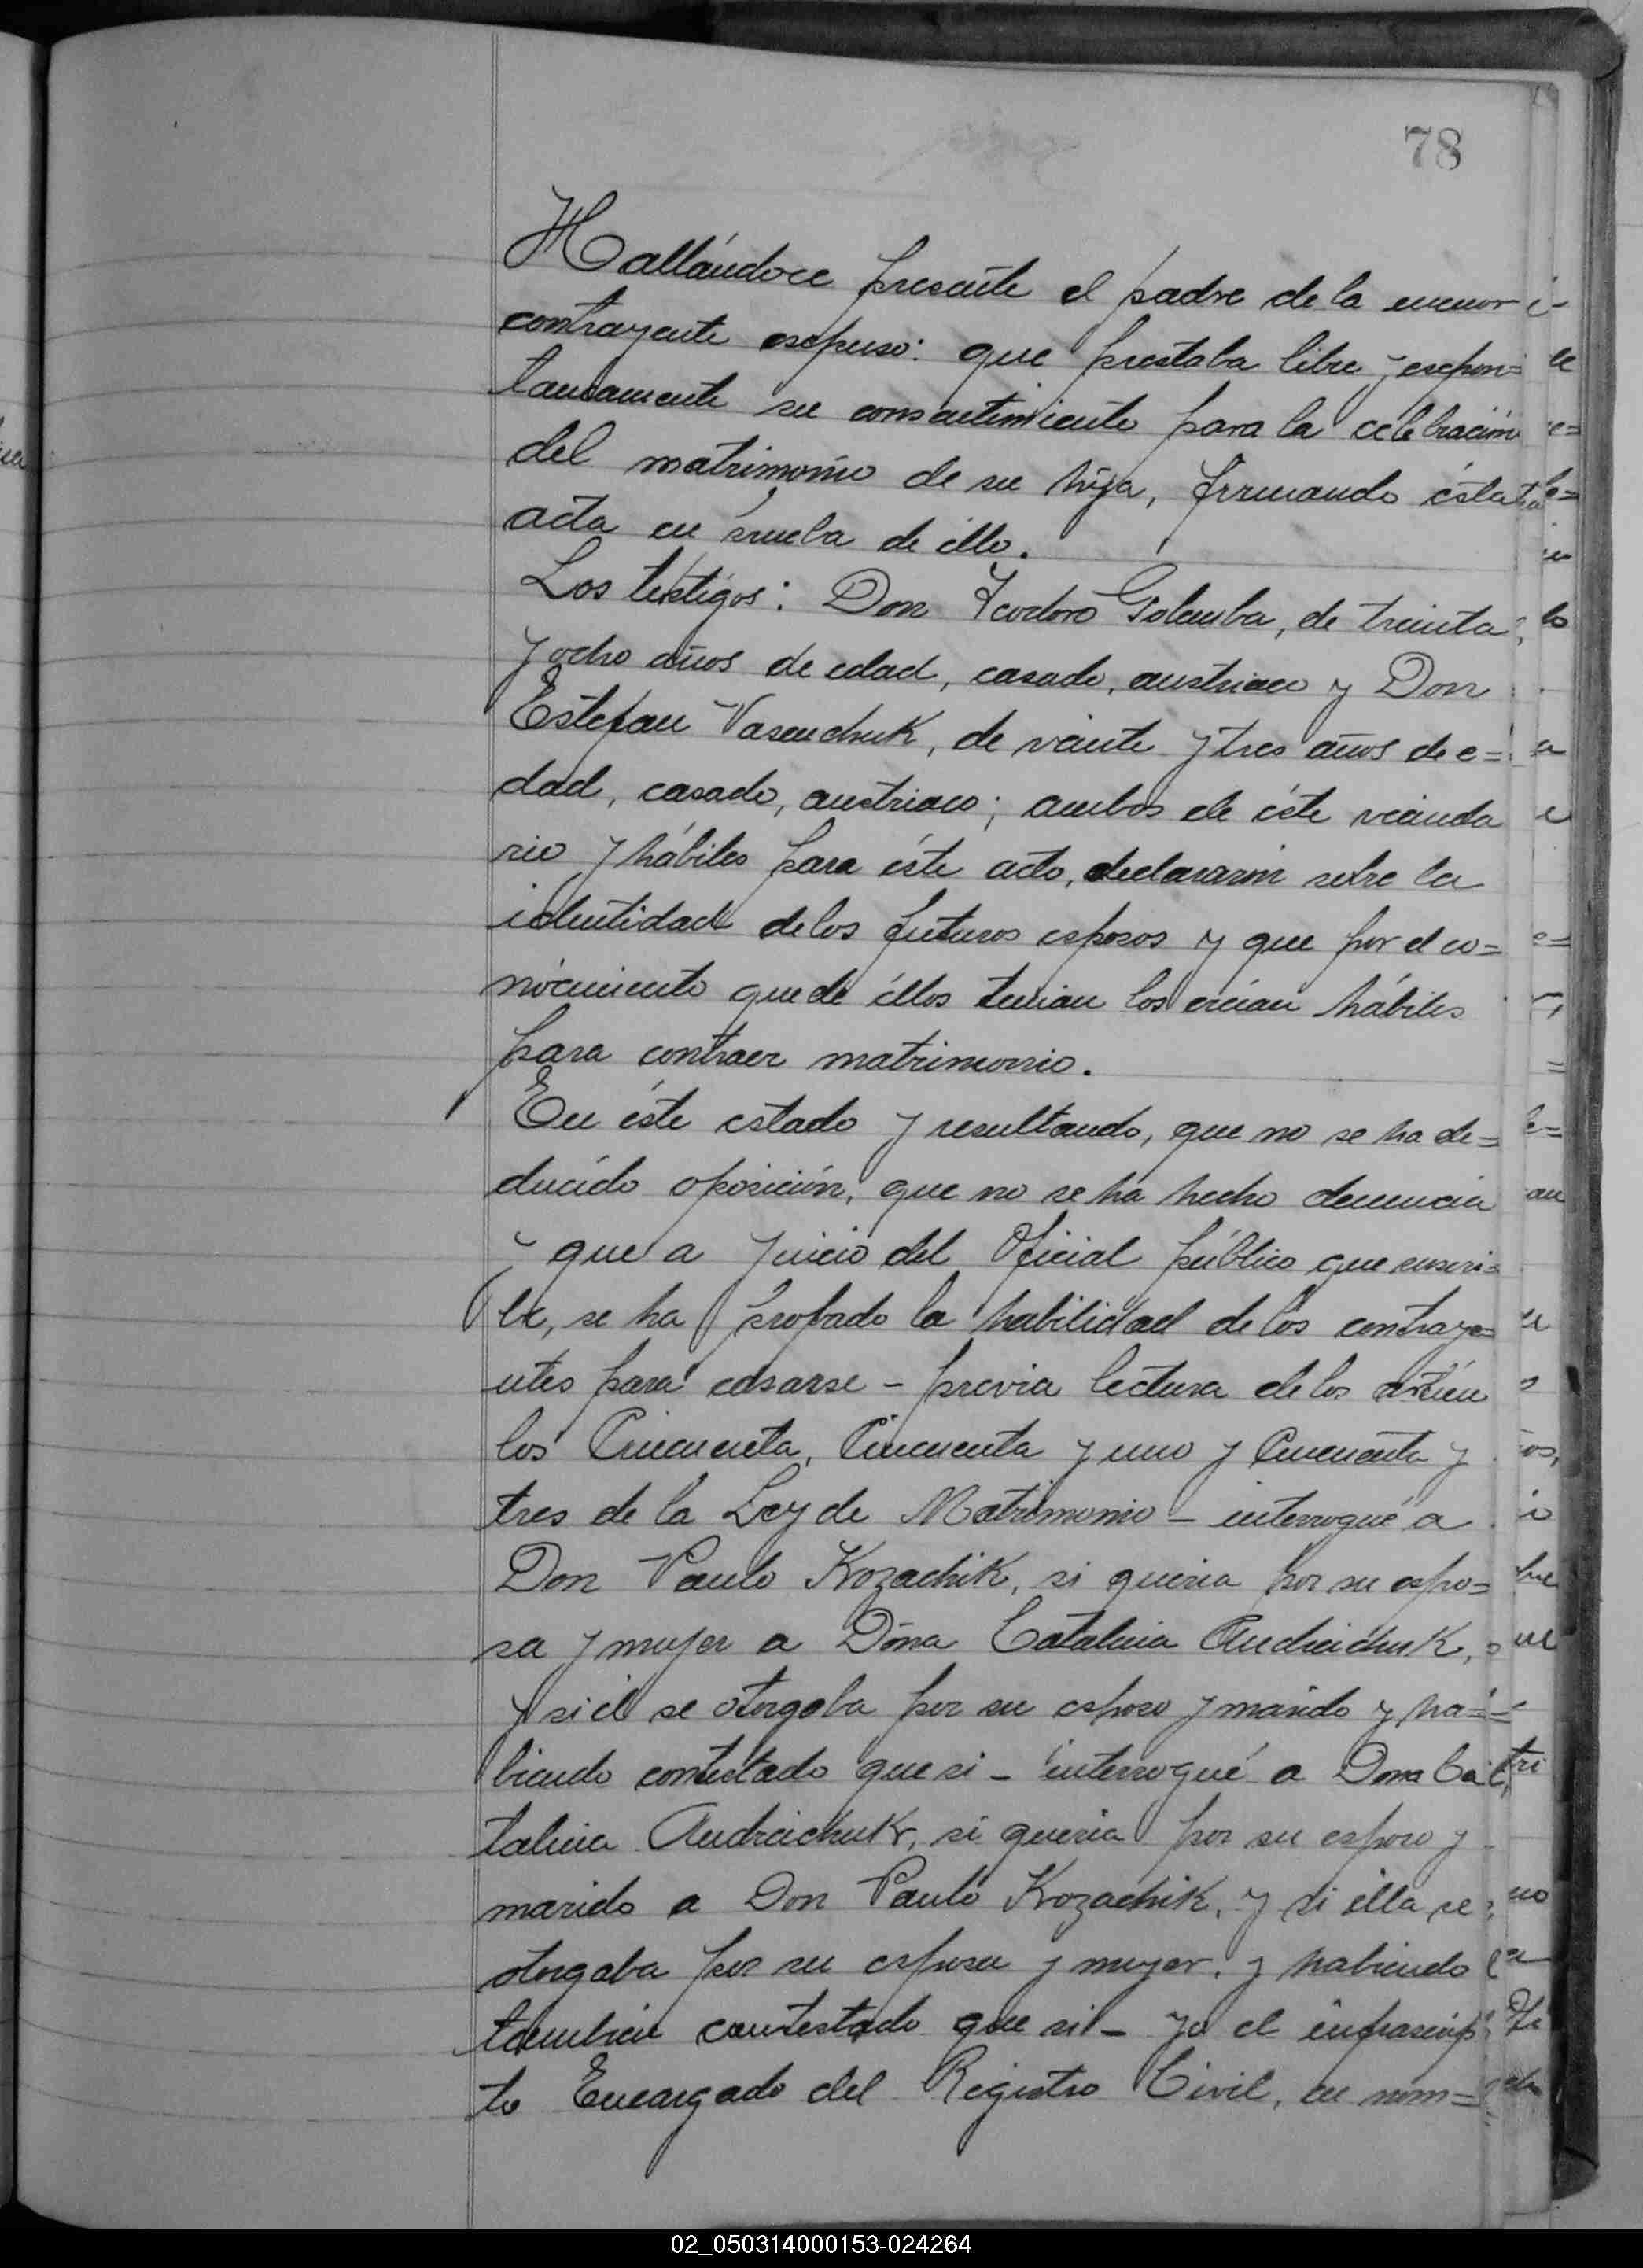 78
Hallándoce presente el padre de la menor
contrayente espuso: que prestaba libre y espon=
taneamente su consentimiento para la celebración
del matrimonio de su hija, firmando ésta
acta en prueba de éllo.
Los testigos: Don Teodoro Golemba, de treinta
y ocho años de edad, casado, austriaco y Don
Estefan Vasenchuk, de veinte y tres años de e=
dad, casado, austriaco; ambos de éste vecinda
rio y hábiles para éste acto, declararon sobre la
identidad de los futuros esposos y que por el co=
nocimiento que de éllos tenian los creian hábiles
para contraer matrimonio.
En éste estado y resultando, que no se ha de=
ducido oposición, que no se ha hecho denuncia
y que a juicio del Oficial público que suscri=
be, se ha probado la habilidad de los contraye=
ntes para casarse - previa lectura de los artícu
los Cincuenta, Cincuenta y uno y Cincuenta y
tres de la Ley de Matrimonio - interrogué a
Don Paulo Kozachik, si queria por su espo=
sa y mujer a Doña Catalina Andreichuk,
y si él se otorgaba por su esposo y marido y ha=
biendo contestado que si - interrogué a Doña Ca
talina Andreichuk, si queria por su esposo y
marido a Don Paulo Kozachik, y si élla se
otorgaba por su esposa y mujer, y habiendo
tambien contestado que si - yo el infrascrip
to Encargado del Registro Civil, en nom=
02_050314000153-024264